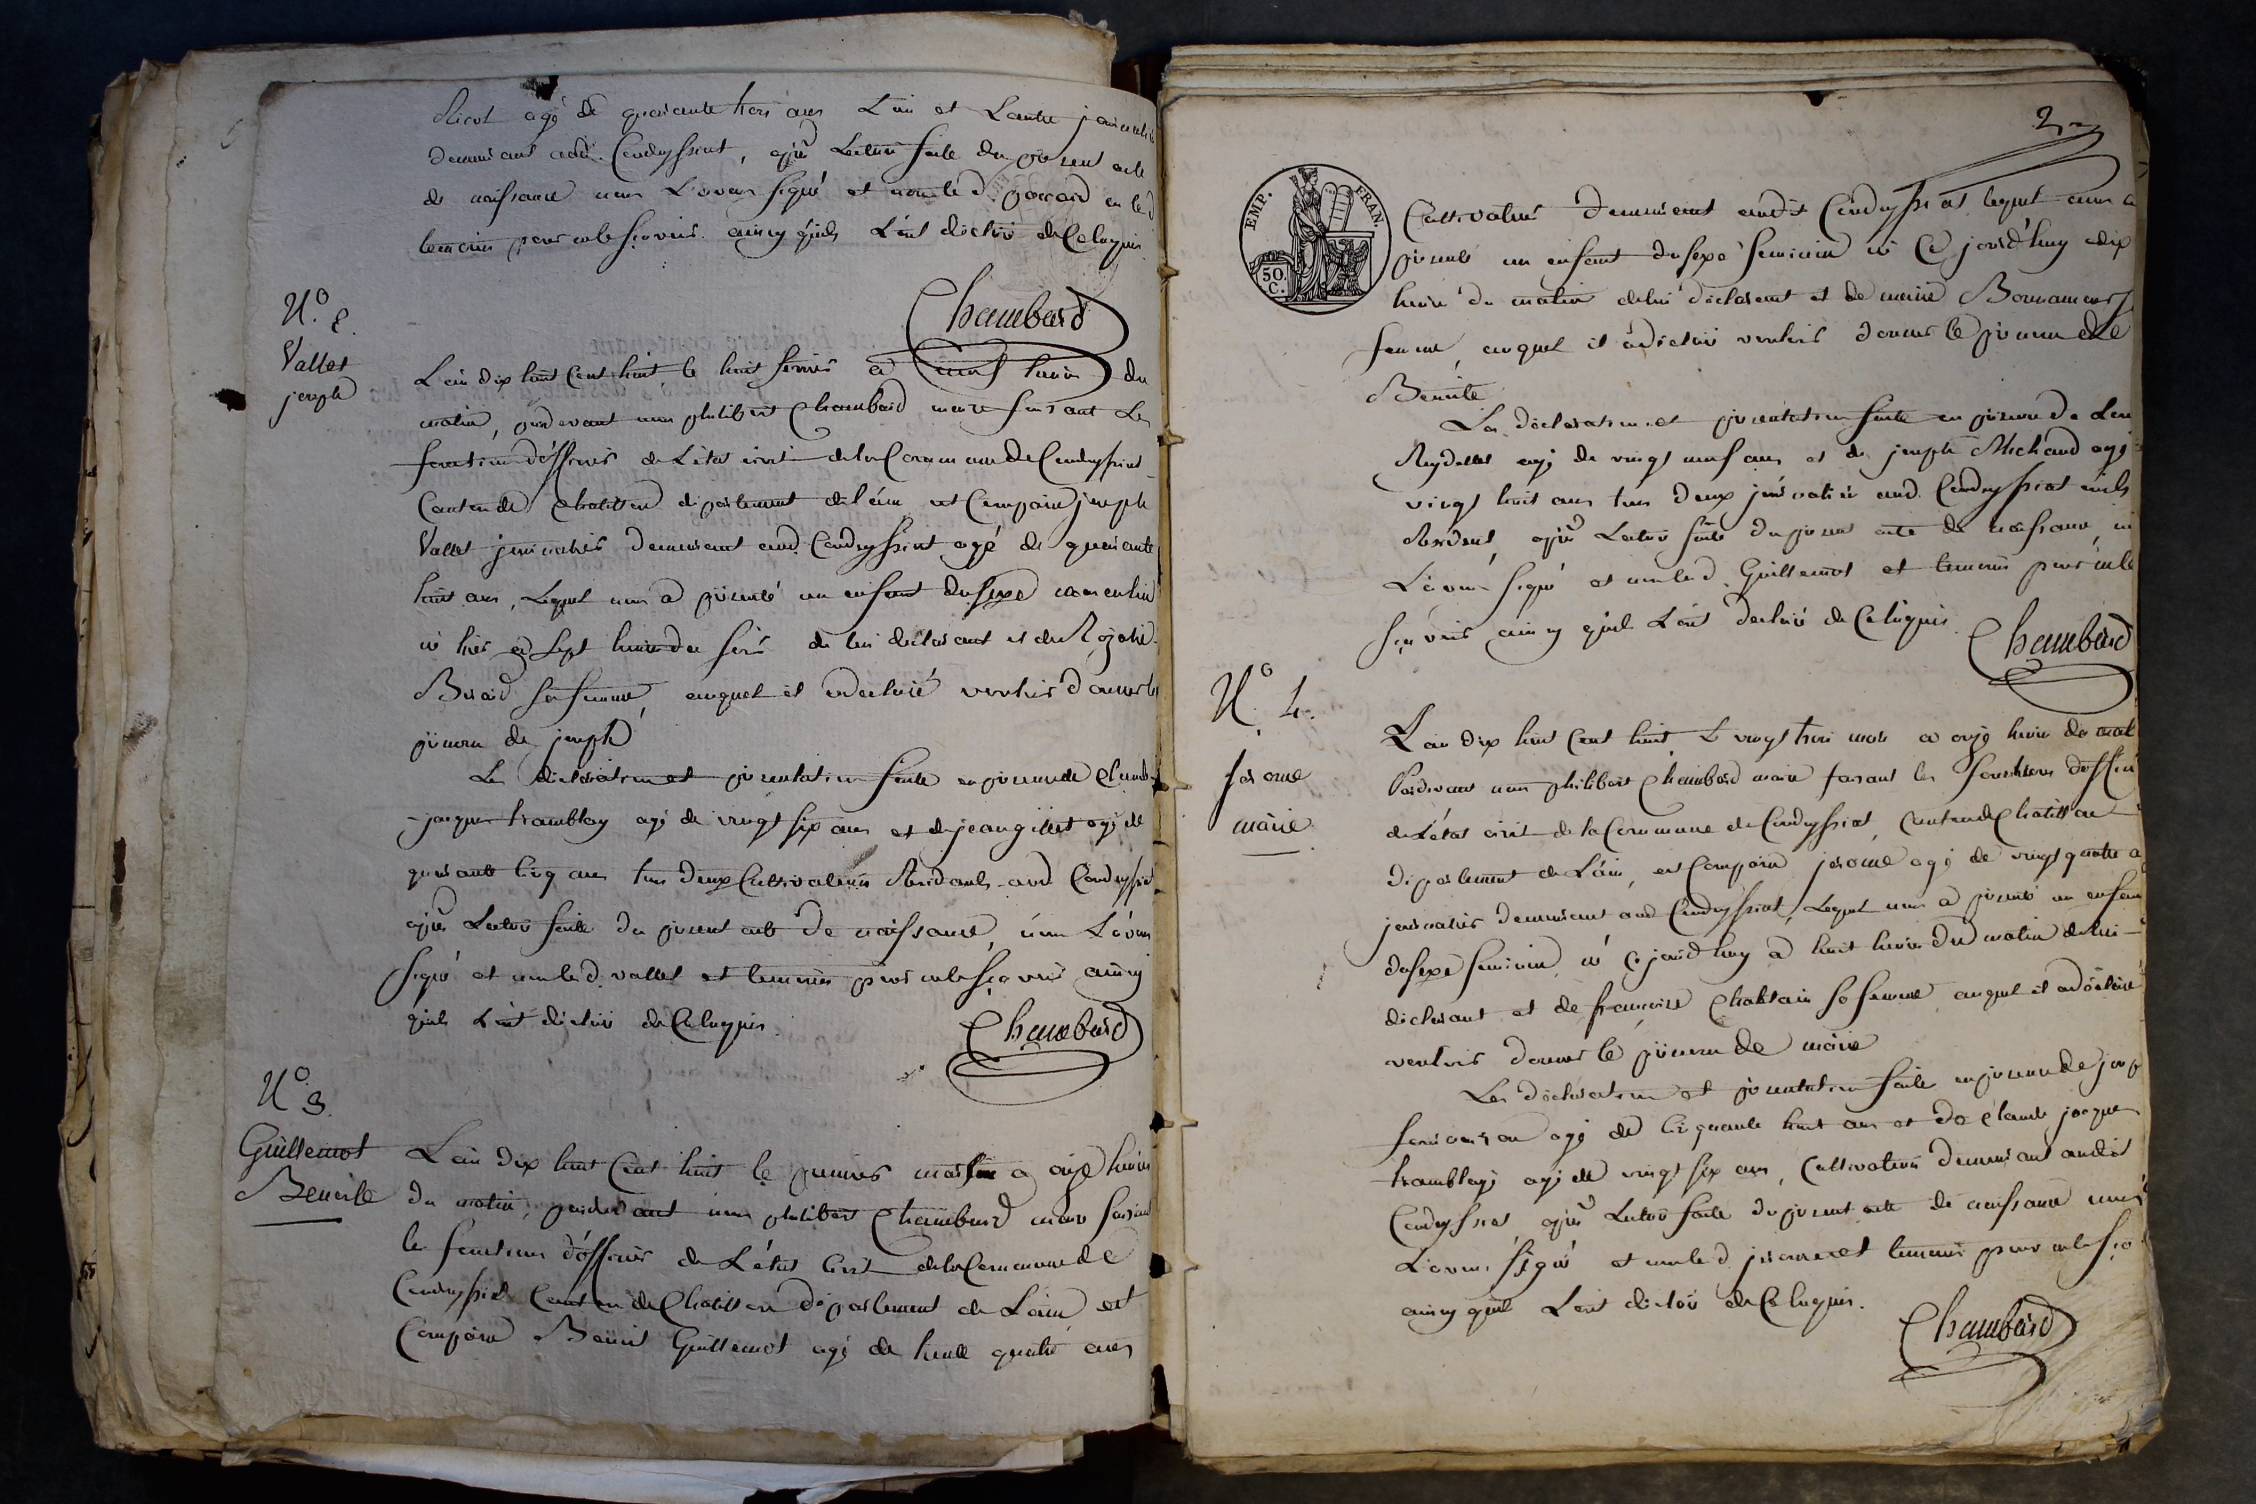 Nicot agé de quarante trois ans L'un et L'autre journaliers
demeurant aud. Condeyssiat, après Lecture faite du présent acte
de naissance nous L'avons signé et non led. en led.
temoins pour ne le sçavoir ainsy qu'ils L'ont déclaré de Ce Enquis.
Chambard
N.º 2.
Vallet
joseph
L'an dix huit Cent huit le huit fevrier a neuf heures du
matin, pardevant nous philibert Chambard maire faisant Les
fonctions d'officier de L'état civil de la Commune de Condeyssiat
Canton de Chatillon département de L'ain est Comparu joseph
Vallet journalier demeurant aud. Condeyssiat agé de quarante
huit ans, Lequel nous a présenté un enfant du sexe masculin
né hier a Sept heures du soir de lui déclarant et de
sa femme, auquel il a déclaré vouloir donner le
prénom de joseph
Les déclaration et présentation faite en présence de Claude
jacques tramblay agé de vingt six ans et de jean gillet agé de
quarante cinq ans tous deux Cultivateurs Residants aud. Condeyssiat
après Lecture faite du présent acte de naissance, nous L'avons
signé et non led. vallet et temoins pour ne le sçavoir ainsy
qu'ils L'ont déclaré de Ce Enquis.
Chambard
N.º 3.
Guillemot
Benoite
L'an dix huit Cent huit le premier mars a onze heures
du matin, pardevant nous philibert Chambard maire faisant
les fonctions d'officier de L'état Civil de la Commune de
Condeyssiat Canton de Chatillon département de L'ain est
Comparu Benoit Guillemot agé de trente quatre ans
2
EMP. FRAN.
50. C.
Cultivateur demeurant audit Condeyssiat lequel nous a
présenté un enfant du sexe feminin né Ce jourd'huy a dix
heures du matin de lui déclarant et de marie
femme, auquel il a déclaré vouloir donner le prénom de
Benoite
Les déclaration et présentation faite en présence de
Reydellet agé de vingt neuf ans et de joseph Michaud agé
vingt huit ans tous deux journaliers aud. Condeyssiat
Residant, après Lecture faite du présent acte de naissance,
L'avons signé et non led. Guillemot et temoins pour ne le
sçavoir ainsy qu'ils L'ont déclaré de Ce Enquis.
Chambard
N.º 4.
jerome
marie
L'an dix huit Cent huit, Le vingt trois mars a onze heures du mat
Pardevant nous philibert Chambard maire faisant les fonctions d'offici
de L'état civil de la Commune de Condeyssiat, Canton de Chatillon
département de L'ain, est Comparu jerome agé de vingt quatre a
journalier demeurant aud. Condeyssiat, Lequel nous a présenté un enfan
du sexe feminin né Ce jourd'huy a huit heures du matin de lui
déclarant et de françoise sa femme auquel il a déclaré
vouloir donner le prénom de marie
Les déclaration et présentation faite en présence de
agé de cinquante huit ans et de Claude jacques
tramblay agé de vingt six ans, Cultivateurs demeurant audit
Condeyssiat après Lecture faite du présent acte de naissance nous
L'avons signé et non led. jerome et temoins pour ne le sça
ainsy qu'ils L'ont déclaré de Ce Enquis.
Chambard